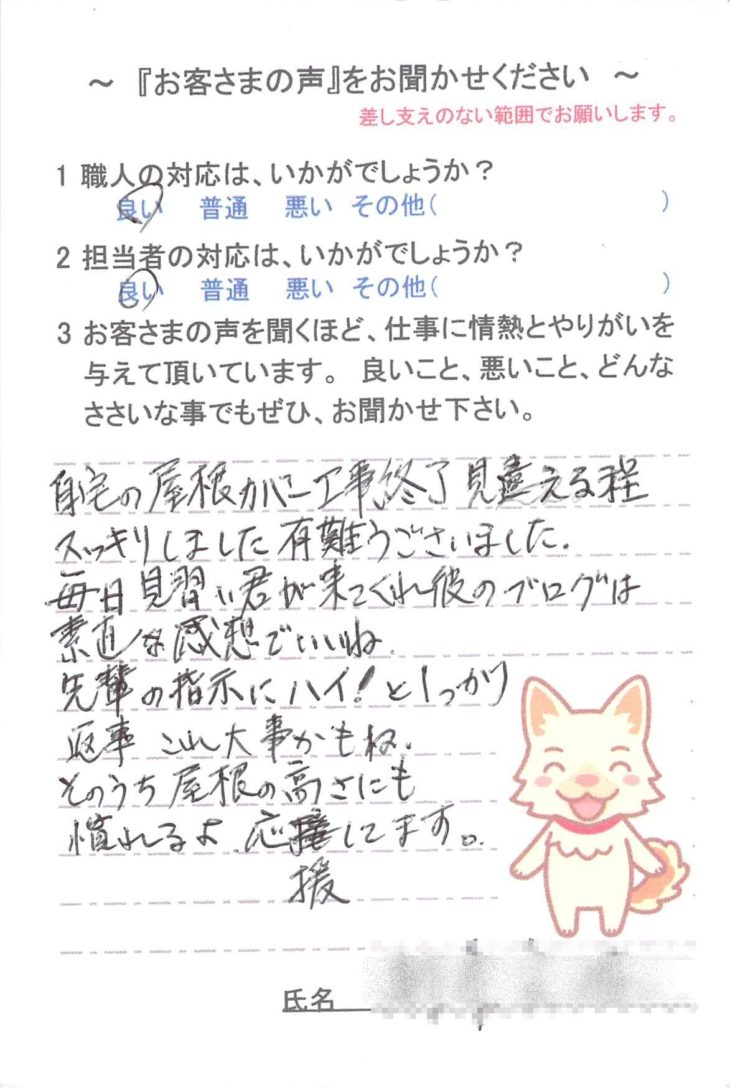 ～ 『お客さまの声』をお聞かせください ～
差し支えのない範囲でお願いします。
1 職人の対応は、いかがでしょうか？
良い 普通 悪い その他( )
2 担当者の対応は、いかがでしょうか？
良い 普通 悪い その他( )
3 お客さまの声を聞くほど、仕事に情熱とやりがいを
与えて頂いています。 良いこと、悪いこと、どんな
ささいな事でもぜひ、お聞かせ下さい。
自宅の屋根カバー工事終了見違える程
スッキリしました有難うございました.
毎日見習い君が来てくれ彼のブログは
素直な感想でいいね.
先輩の指示にハイ!としっかり
返事 これ大事かもね.
そのうち屋根の高さにも
慣れるよ.応してます。
援
氏名